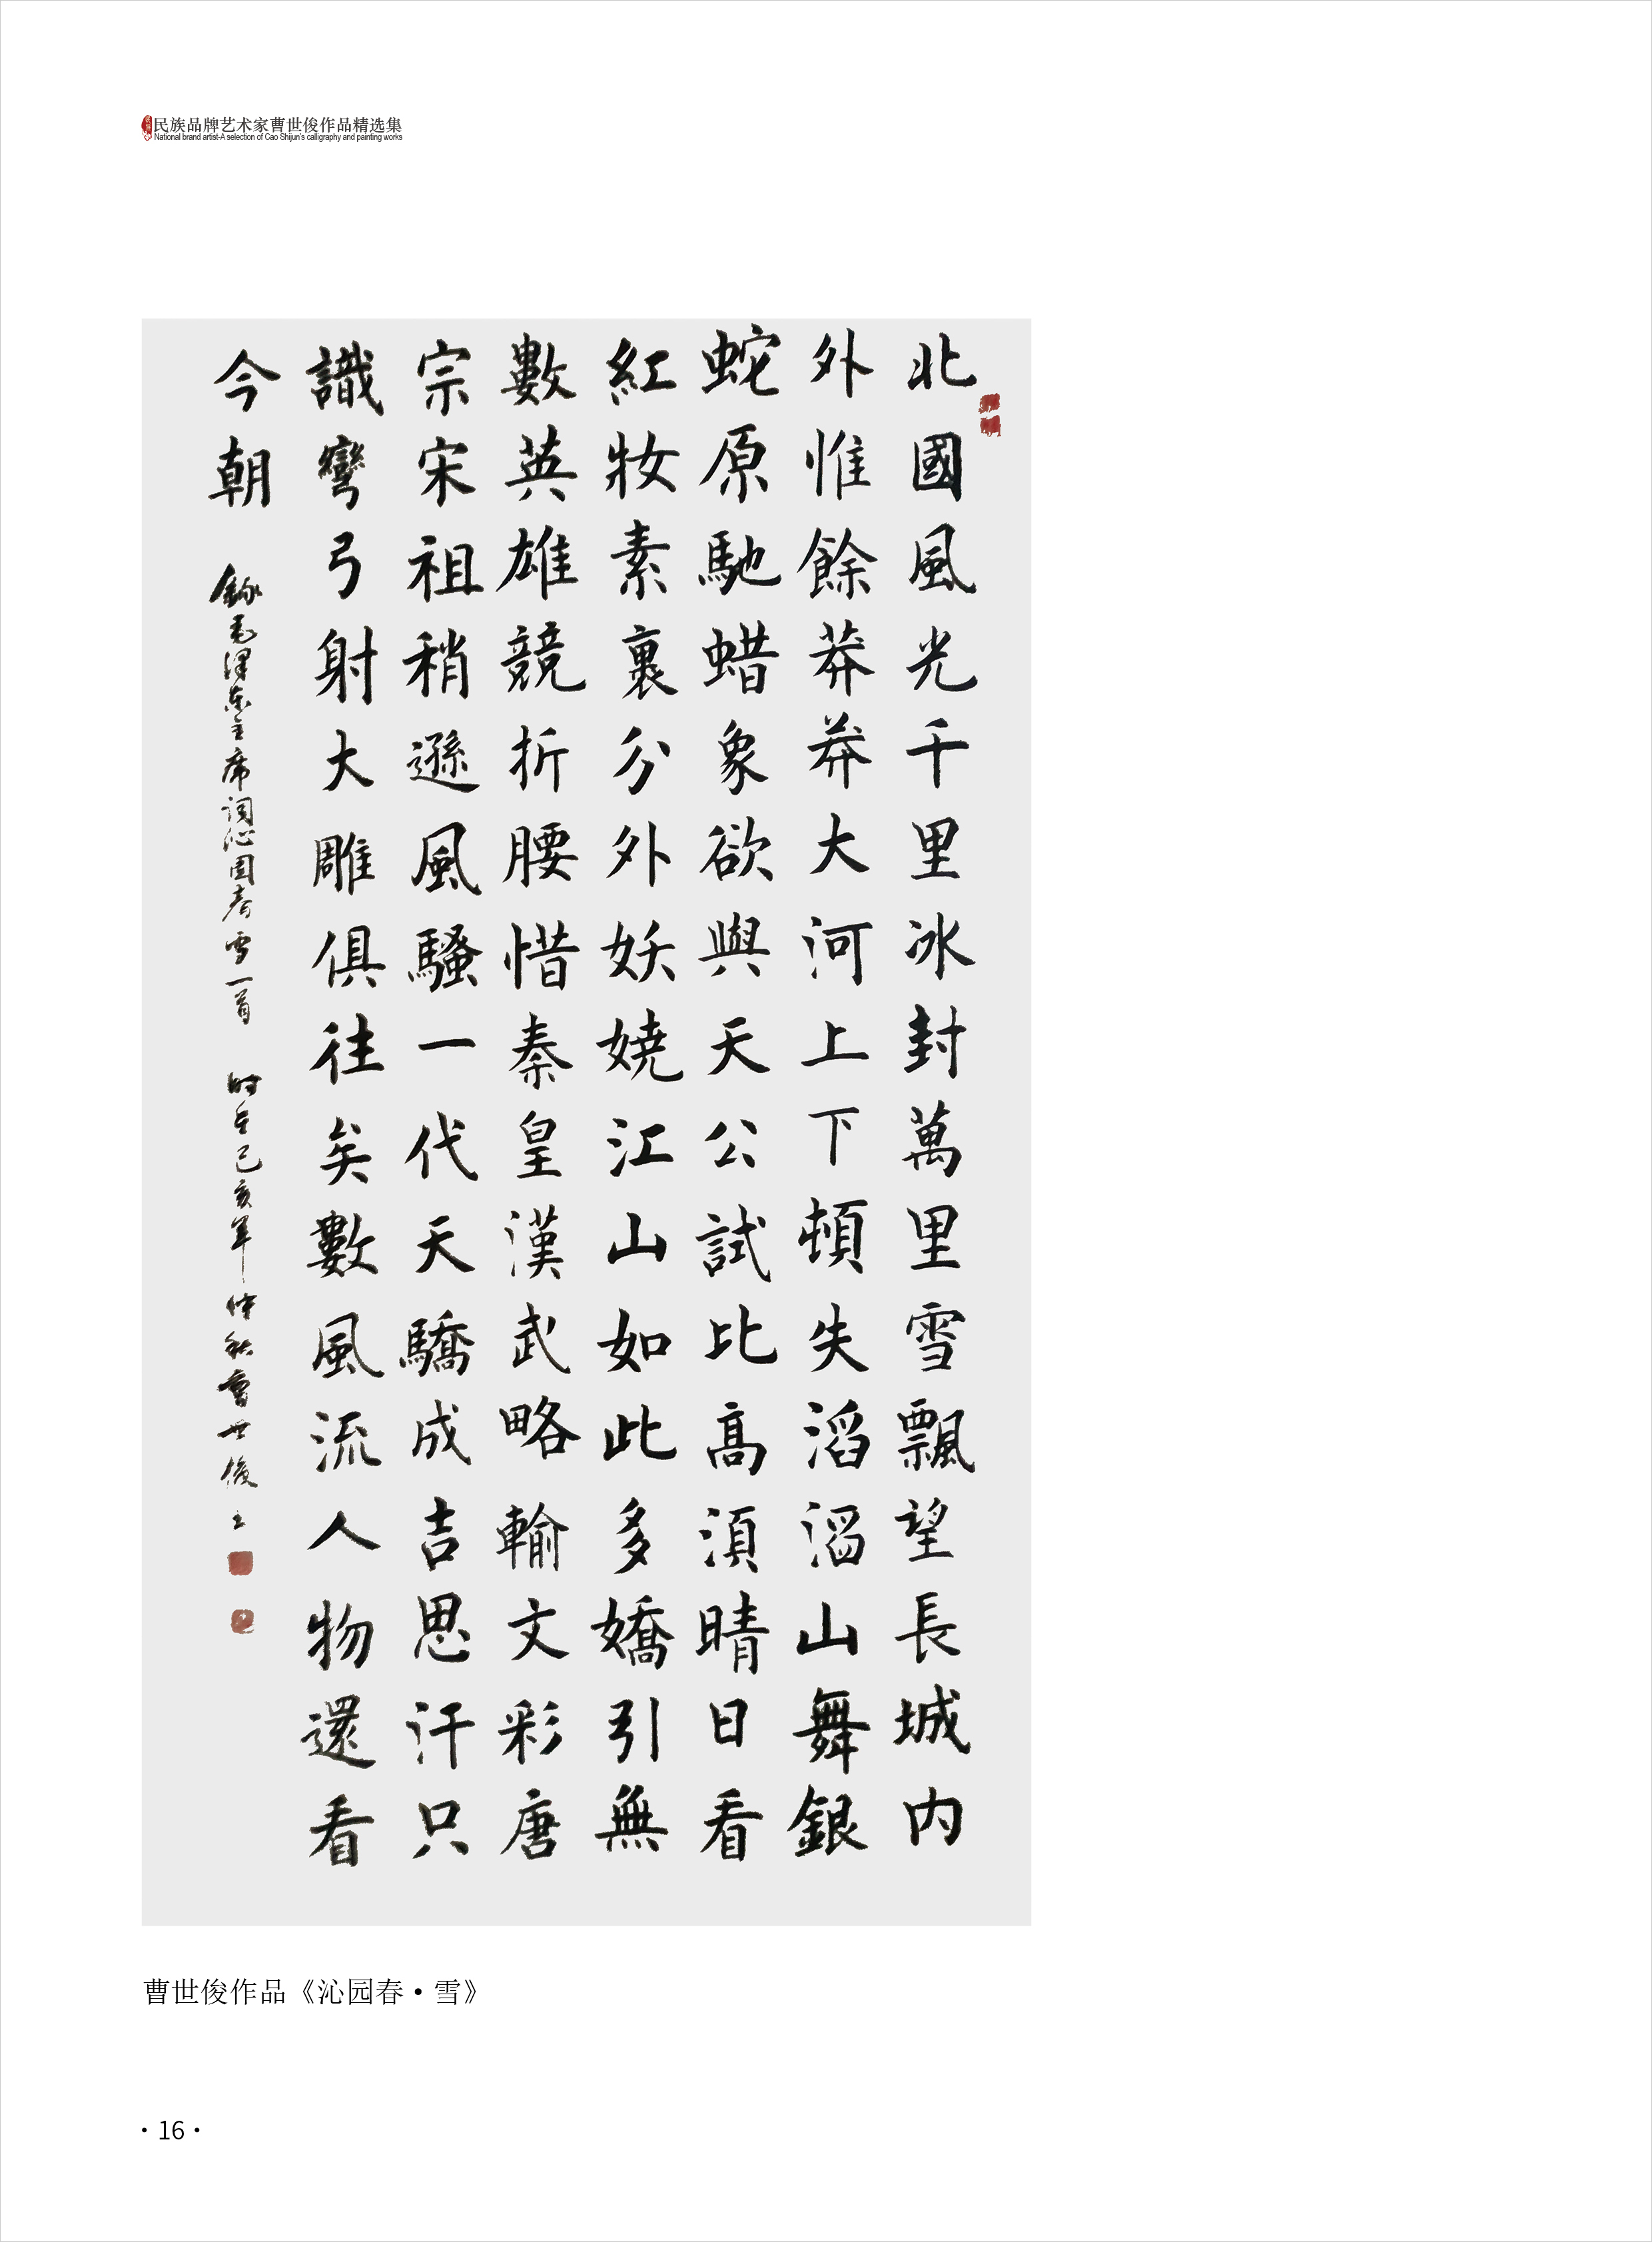 民族品牌艺术家曹世俊作品精选集
National brand artist-A selection of Cao Shijun's calligraphy and painting works
北國風光千里冰封萬里雪飄望長城内
外惟餘莽莽大河上下頓失滔滔山舞銀
蛇原馳蜡象欲與天公試比高湏晴日看
紅妝素裹分外妖嬈江山如此多嬌引無
數英雄競折腰惜秦皇漢武略輸文彩唐
宗宋祖稍遜風騷一代天驕成吉思汗只
識彎弓射大雕俱往矣數風流人物還看
今朝 錄毛澤东主席词沁园春雪一首 时在己亥年仲秋曹世俊书
曹世俊作品《沁园春•雪》
·16·